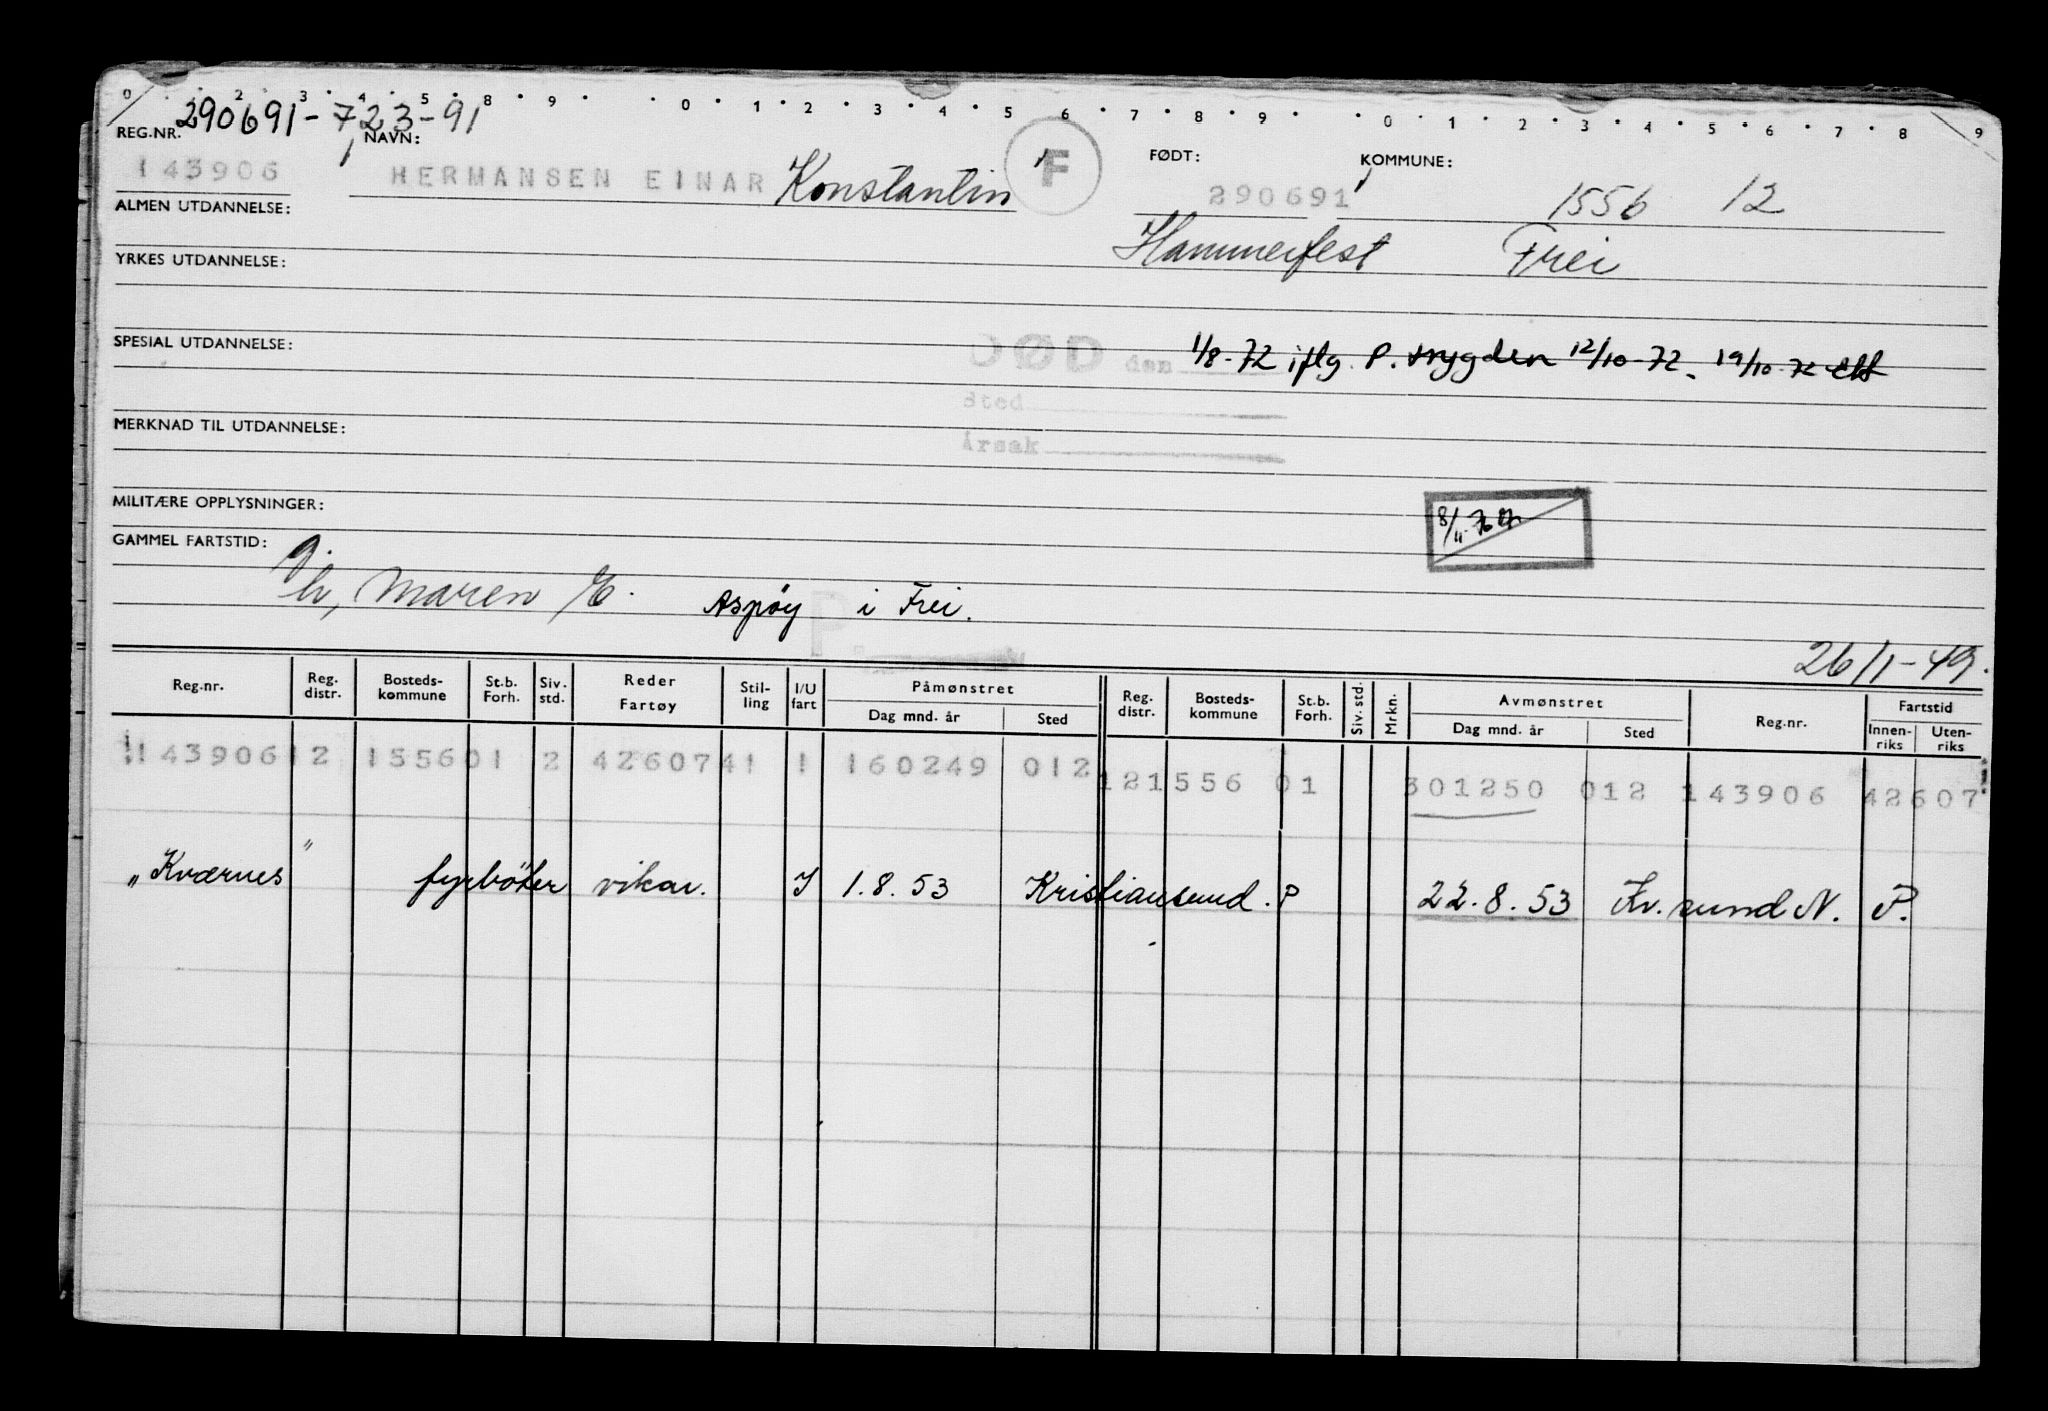 0 . . 2 . 3 . 4 . 5 . 8 . 9 . . 0 . 1 . 2 . 3 . 4 . 5 . 6 . 7 . 8 . 9 . . 0 . 1 . 2 . 3 . 4 . 5 . 6 . 7 . 8 . 9
290691-723-91
REG.NR. NAVN: F FØDT: KOMMUNE:
143906 HERMANSEN EINAR Konstantin 290691 1556 12
ALMEN UTDANNELSE: Hammerfest Frei
YRKES UTDANNELSE:
SPESIAL UTDANNELSE: DØD den 1/8-72 iflg. P. trygden 12/10-72. 19/10-72
Sted
Årsak
MERKNAD TIL UTDANNELSE:
MILITÆRE OPPLYSNINGER: 8/11-76
GAMMEL FARTSTID: g.
h, Maren E. Aspøy i Frei.
P
26/1-49.
Reg.nr. Reg. distr. Bosteds-kommune St.b. Forh. Siv. std. Reder Fartøy Stil-ling I/U fart Påmønstret Dag mnd. år Sted Reg. distr. Bosteds-kommune St.b. Forh. Siv. std. Mrkn. Avmønstret Dag mnd. år Sted Reg.nr. Fartstid Innen-riks Uten-riks
143906 12 1556 01 2 42607 41 1 160249 012 12 1556 01 301250 012 143906 42607
"Kværnes" fyrbøter vikar. I 1.8.53 Kristiansund. P 22.8.53 Kr.sund N. P.